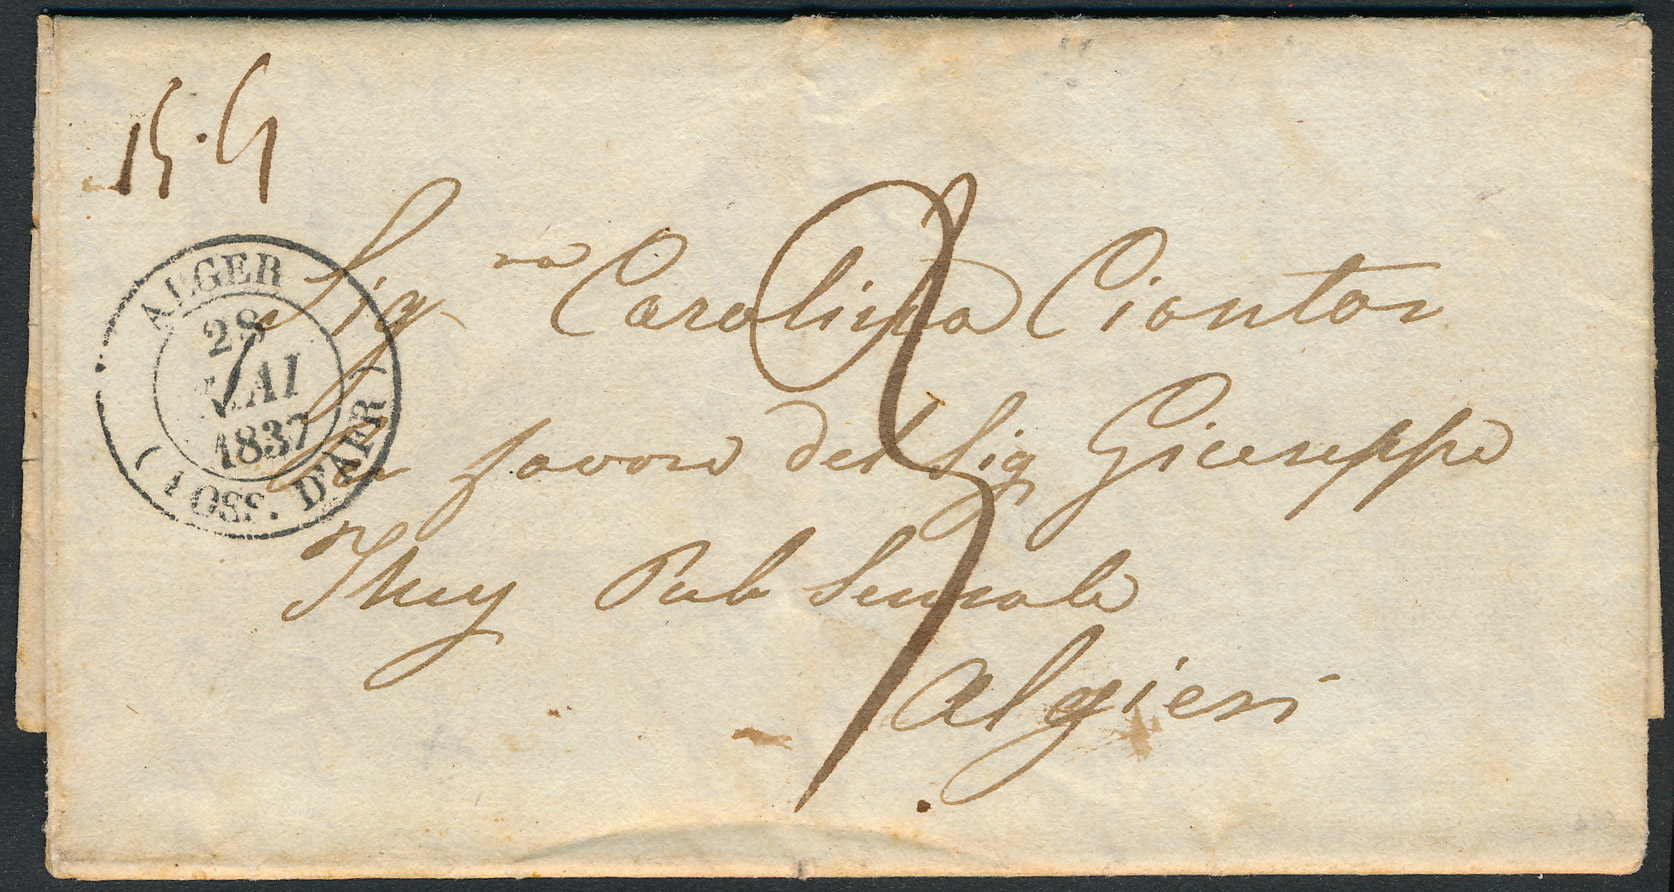 15·4
ALGER
28
MAI
1837
(POSS. D'AFR)
Sig.ra Carolina Ciantar
in favore del Sig Giuseppe
Thuy Pub Sensale
Algieri